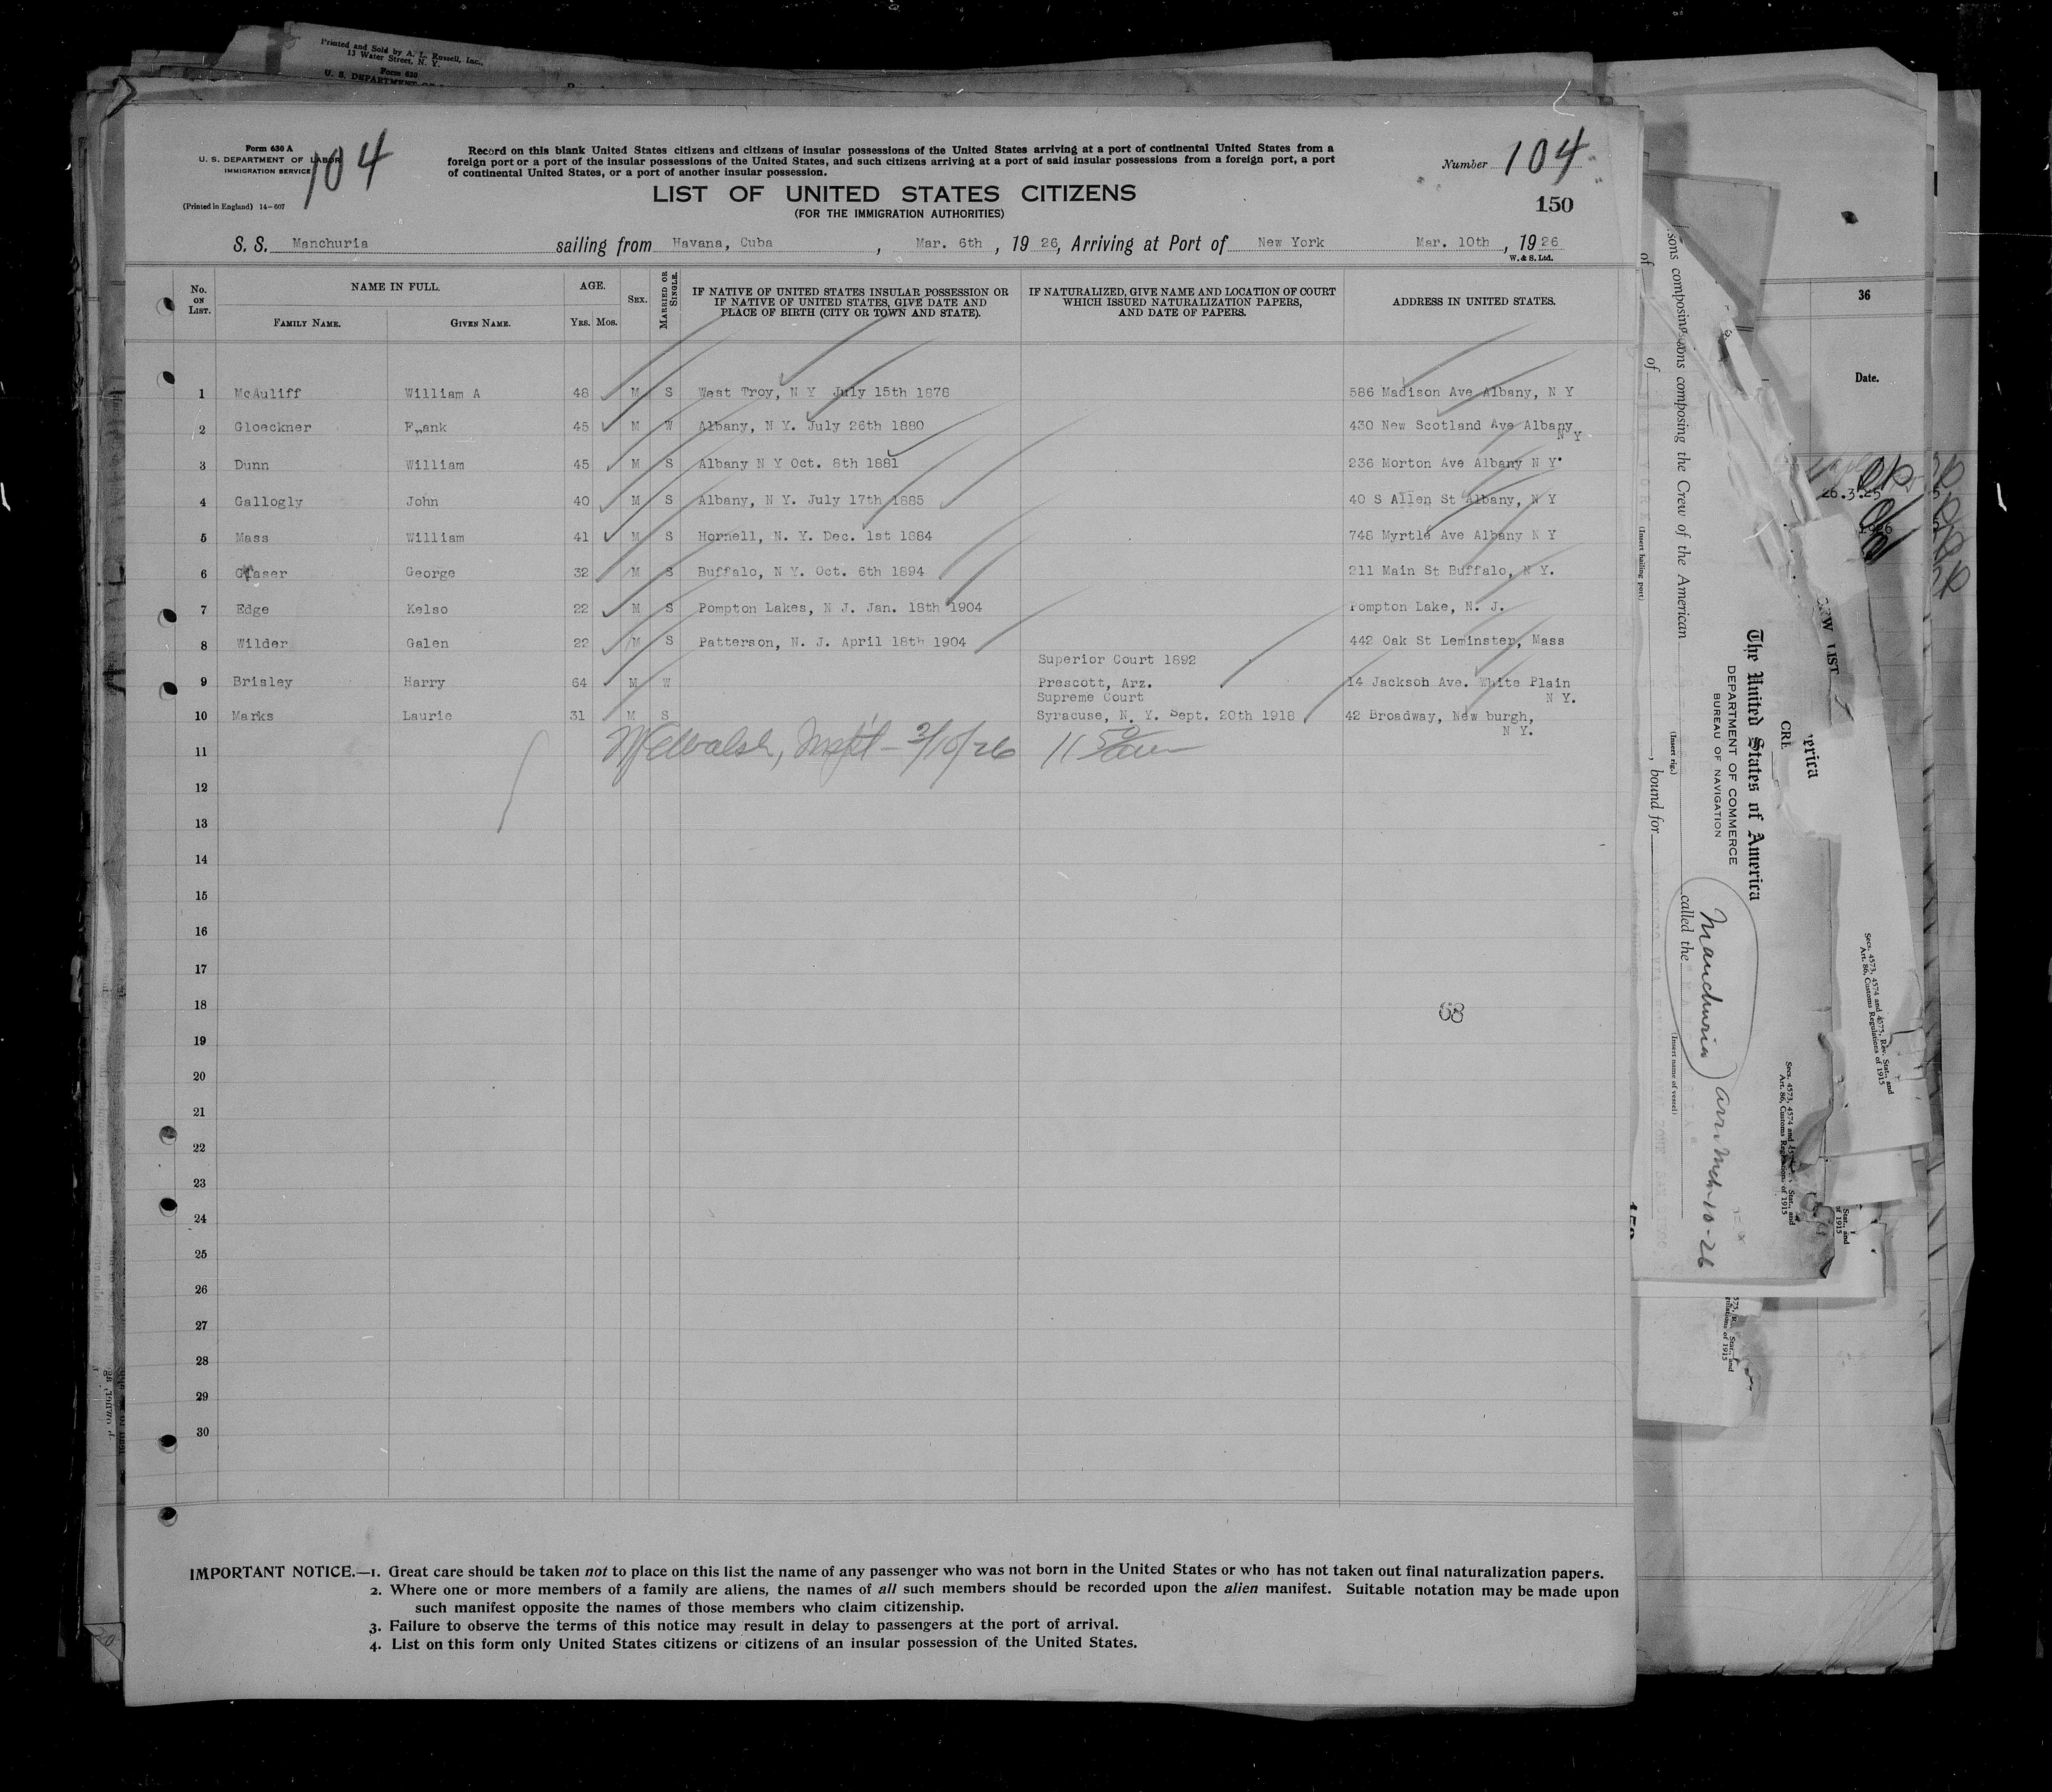 Printed and Sold by A. L. Russell, Inc.,
13 Water Street, N. Y.
Form 630
U. S. DEPARTMENT OF
Form 630 A
U. S. DEPARTMENT OF LABOR
IMMIGRATION SERVICE
(Printed in England) 14-607
104
Record on this blank United States citizens and citizens of insular possessions of the United States arriving at a port of continental United States from a
foreign port or a port of the insular possessions of the United States, and such citizens arriving at a port of said insular possessions from a foreign port, a port
of continental United States, or a port of another insular possession.
Number 104
LIST OF UNITED STATES CITIZENS
(FOR THE IMMIGRATION AUTHORITIES)
150
S. S. Manchuria sailing from Havana, Cuba, Mar. 6th, 1926, Arriving at Port of New York Mar. 10th, 1926
W. & S. Ltd.
No. ON LIST. NAME IN FULL. AGE. SEX. MARRIED OR SINGLE. IF NATIVE OF UNITED STATES INSULAR POSSESSION OR IF NATIVE OF UNITED STATES, GIVE DATE AND PLACE OF BIRTH (CITY OR TOWN AND STATE). IF NATURALIZED, GIVE NAME AND LOCATION OF COURT WHICH ISSUED NATURALIZATION PAPERS, AND DATE OF PAPERS. ADDRESS IN UNITED STATES.
FAMILY NAME. GIVEN NAME. YRS. MOS.
1 McAuliff William A 48 M S West Troy, N Y July 15th 1878 586 Madison Ave Albany, N Y
2 Gloeckner Frank 45 M W Albany, N Y. July 26th 1880 430 New Scotland Ave Albany N Y
3 Dunn William 45 M S Albany N Y Oct. 8th 1881 236 Morton Ave Albany N Y
4 Gallogly John 40 M S Albany, N Y. July 17th 1885 40 S Allen St Albany, N Y
5 Mass William 41 M S Hornell, N. Y. Dec. 1st 1884 748 Myrtle Ave Albany N Y
6 Glaser George 32 M S Buffalo, N Y. Oct. 6th 1894 211 Main St Buffalo, N Y.
7 Edge Kelso 22 M S Pompton Lakes, N J. Jan. 18th 1904 Pompton Lake, N. J.
8 Wilder Galen 22 M S Patterson, N. J. April 18th 1904 442 Oak St Leminster, Mass
Superior Court 1892
9 Brisley Harry 64 M W Prescott, Arz. 14 Jackson Ave. White Plain
Supreme Court N Y.
10 Marks Laurie 31 M S Syracuse, N. Y. Sept. 20th 1918 42 Broadway, New burgh,
N Y.
11 Walsh, 3/10/26 11 50
12
13
14
15
16
17
18
63
19
20
21
22
23
24
25
26
27
28
29
30
IMPORTANT NOTICE.—1. Great care should be taken not to place on this list the name of any passenger who was not born in the United States or who has not taken out final naturalization papers.
2. Where one or more members of a family are aliens, the names of all such members should be recorded upon the alien manifest. Suitable notation may be made upon
such manifest opposite the names of those members who claim citizenship.
3. Failure to observe the terms of this notice may result in delay to passengers at the port of arrival.
4. List on this form only United States citizens or citizens of an insular possession of the United States.
36
Date.
The United States of America
DEPARTMENT OF COMMERCE
BUREAU OF NAVIGATION
sons composing the Crew of the American
called the
Manchuria arr. Mch-10-26
(Insert rig.)
(Insert name of vessel)
(Insert hailing port)
of
of
, bound for
Secs. 4573, 4574 and 4575, Rev. Stat., and
Art. 86, Customs Regulations of 1915